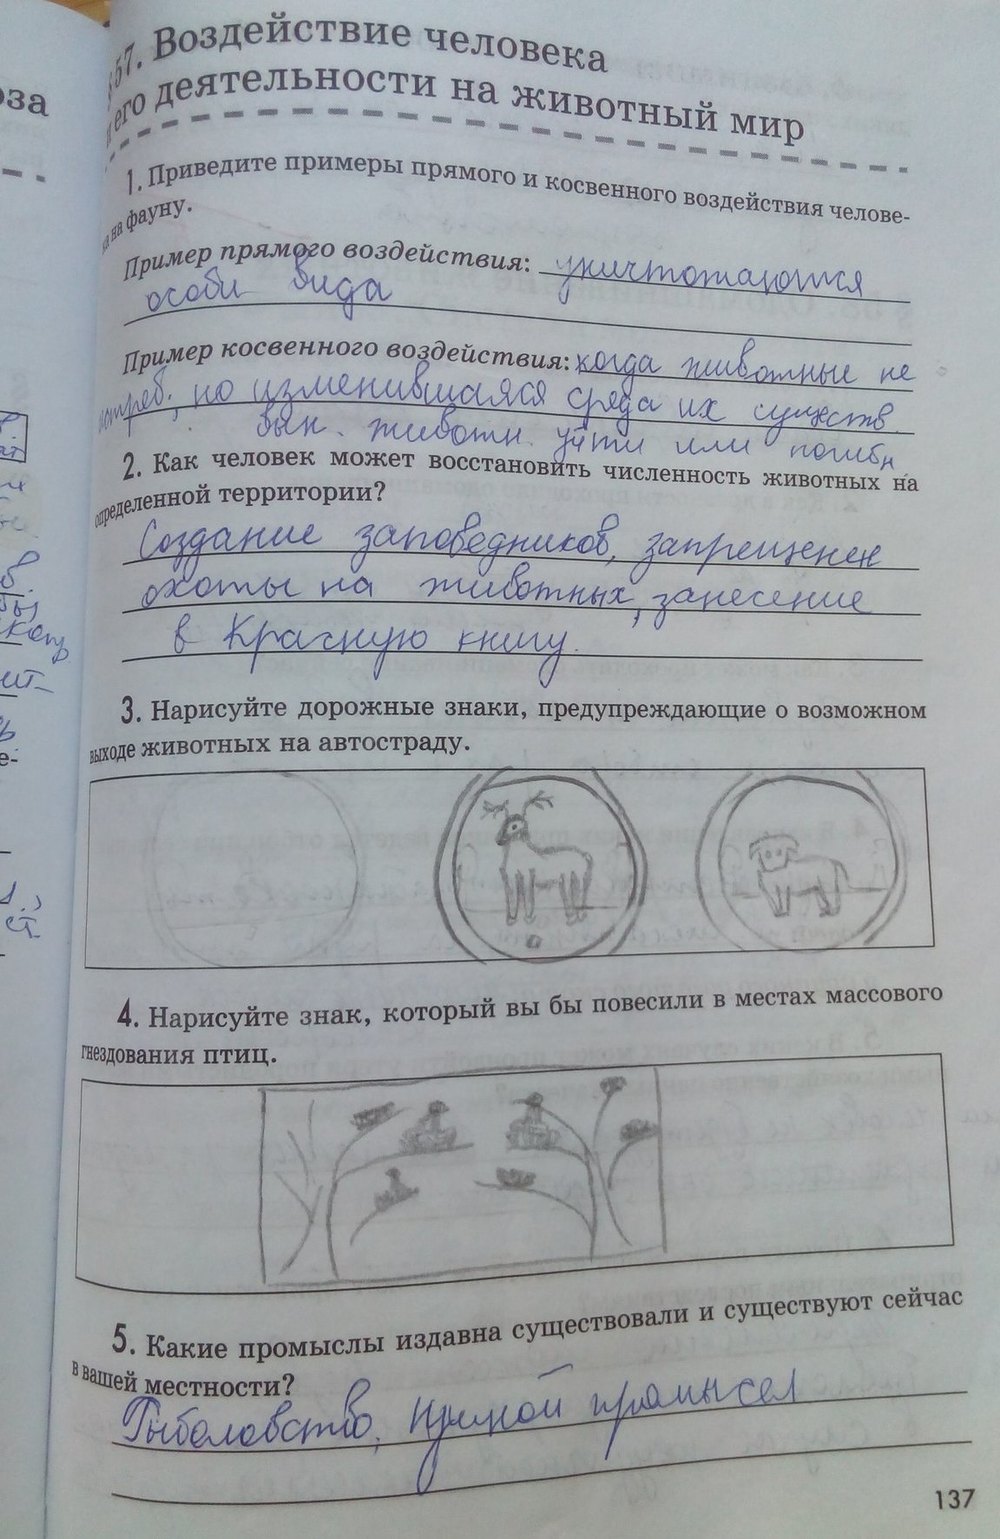 §57. Воздействие человека
и его деятельности на животный мир
оза
1. Приведите примеры прямого и косвенного воздействия челове-
ка на фауну.
Пример прямого воздействия: уничтожаются
особи вида
Пример косвенного воздействия: когда животные не
истреб., но изменившаяся среда их существ.
вын. животн. уйти или погибн
2. Как человек может восстановить численность животных на
определенной территории?
Создание заповедников, запрещенен
охоты на животных, занесение
в Красную книгу.
3. Нарисуйте дорожные знаки, предупреждающие о возможном
выходе животных на автостраду.
4. Нарисуйте знак, который вы бы повесили в местах массового
гнездования птиц.
5. Какие промыслы издавна существовали и существуют сейчас
в вашей местности?
Рыболовство, промысел
137